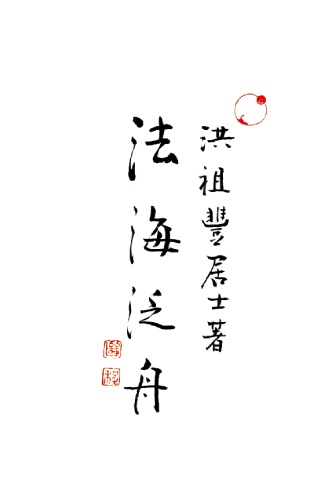 洪祖豐居士著
法海泛舟